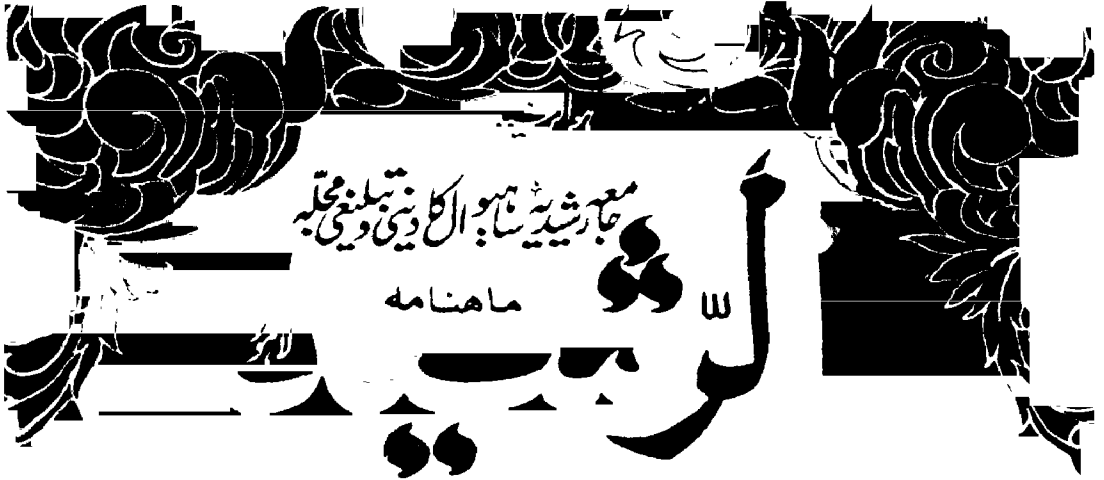 جامعہ رشیدیہ ساہیوال کا دینی و تبلیغی مجلّہ
ماهنامه
الرشید
لاہور